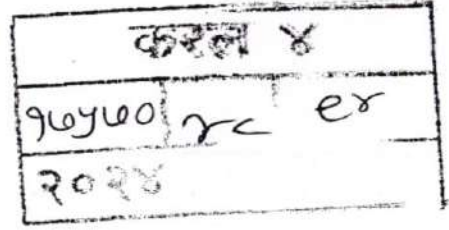 करल ४
१७५७० ४८ ९४
२०२४